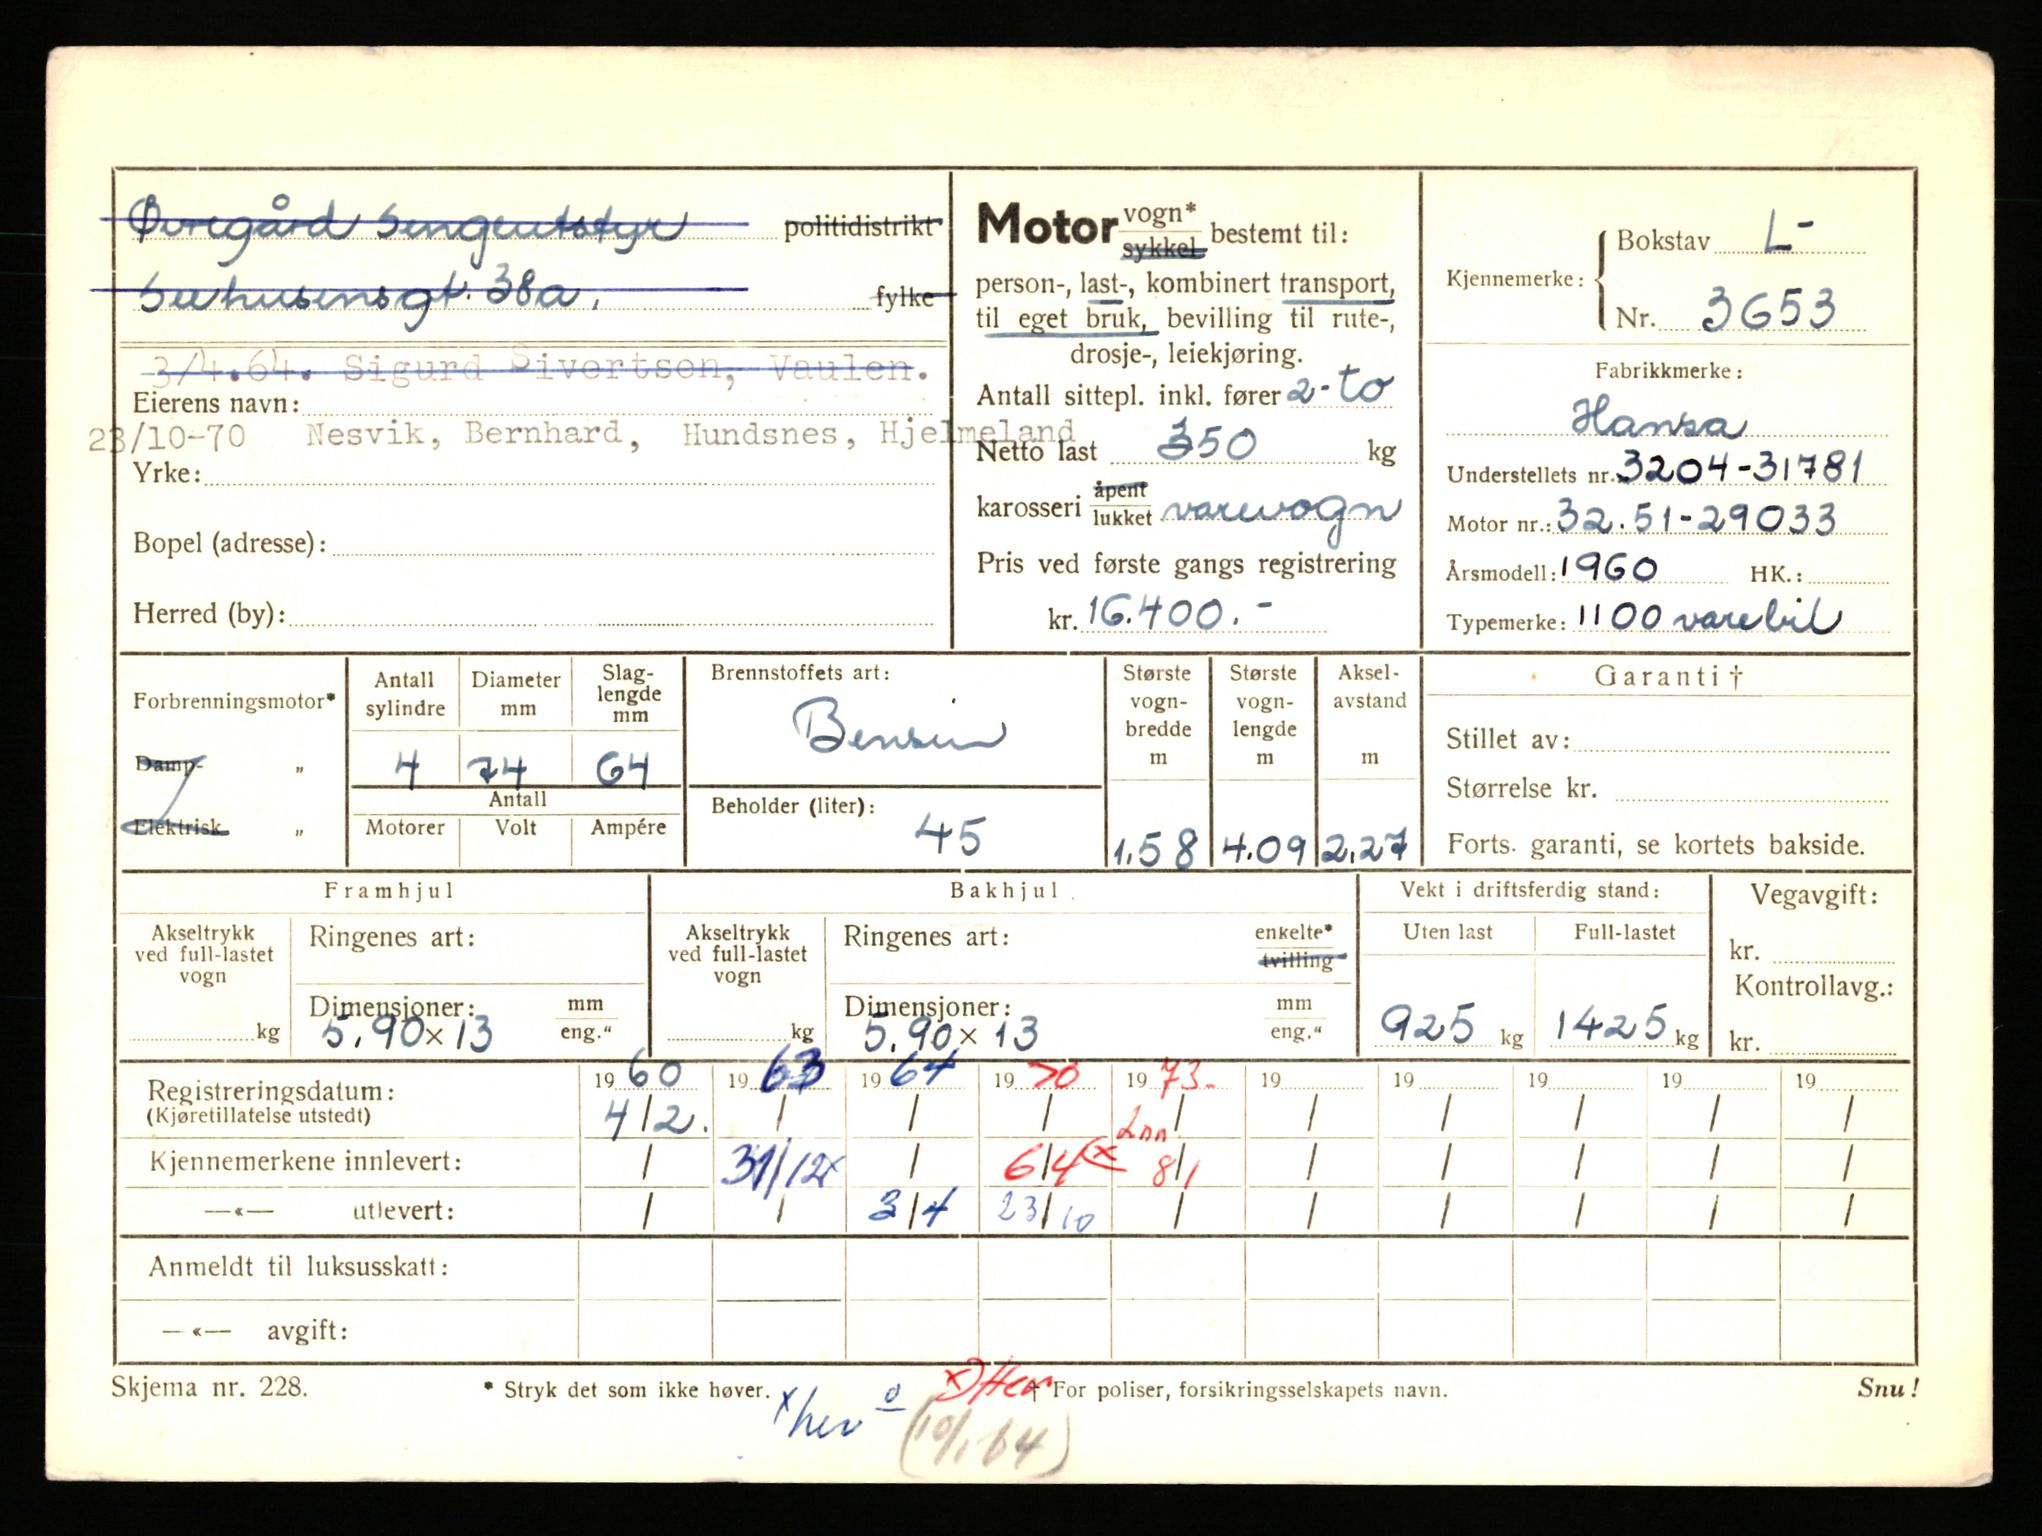 Øvregård Sengeutstyr politidistrikt
Seehusensgt. 38a, fylke
3/4.64. Sigurd Sivertsen, Vaulen.
Eierens navn:
23/10-70 Nesvik, Bernhard, Hundsnes, Hjelmeland
Yrke:
Bopel (adresse):
Herred (by):
Motor vogn* sykkel bestemt til:
person-, last-, kombinert transport,
til eget bruk, bevilling til rute-,
drosje-, leiekjøring.
Antall sittepl. inkl. fører 2-to
Netto last 350 kg
karosseri åpent lukket varevogn
Pris ved første gangs registrering
kr. 16.400.-
Kjennemerke: Bokstav L-
Nr. 3653
Fabrikkmerke:
Hansa
Understellets nr. 3204-31781
Motor nr.: 32.51-29033
Årsmodell: 1960 HK.:
Typemerke: 1100 varebil
Forbrenningsmotor*
Damp- „
Elektrisk „
Antall sylindre 4
Diameter mm 74
Slag-lengde mm 64
Antall
Motorer Volt Ampére
Brennstoffets art:
Bensin
Beholder (liter):
45
Største vogn-bredde m 1.58
Største vogn-lengde m 4.09
Aksel-avstand m 2.27
Garanti †
Stillet av:
Størrelse kr.
Forts. garanti, se kortets bakside.
Framhjul
Akseltrykk ved full-lastet vogn
kg
Ringenes art:
Dimensjoner: mm
5.90 x 13 eng.“
Bakhjul
Akseltrykk ved full-lastet vogn
kg
Ringenes art: enkelte* tvilling
Dimensjoner: mm
5.90 x 13 eng.“
Vekt i driftsferdig stand:
Uten last Full-lastet
925 kg 1425 kg
Vegavgift:
kr.
Kontrollavg.:
kr.
19 60 19 63 19 64 19 70 19 73. 19 19 19 19 19
Registreringsdatum:
(Kjøretillatelse utstedt) 4/2. / / / / / / / / /
Kjennemerkene innlevert: / 31/12x / 6/4 x 8/1 / / / / /
—«— utlevert: / / 3/4 23/10 / / / / / /
Anmeldt til luksusskatt:
—«— avgift:
Skjema nr. 228. * Stryk det som ikke høver. † For poliser, forsikringsselskapets navn. Snu!
x her
(10/1 64)